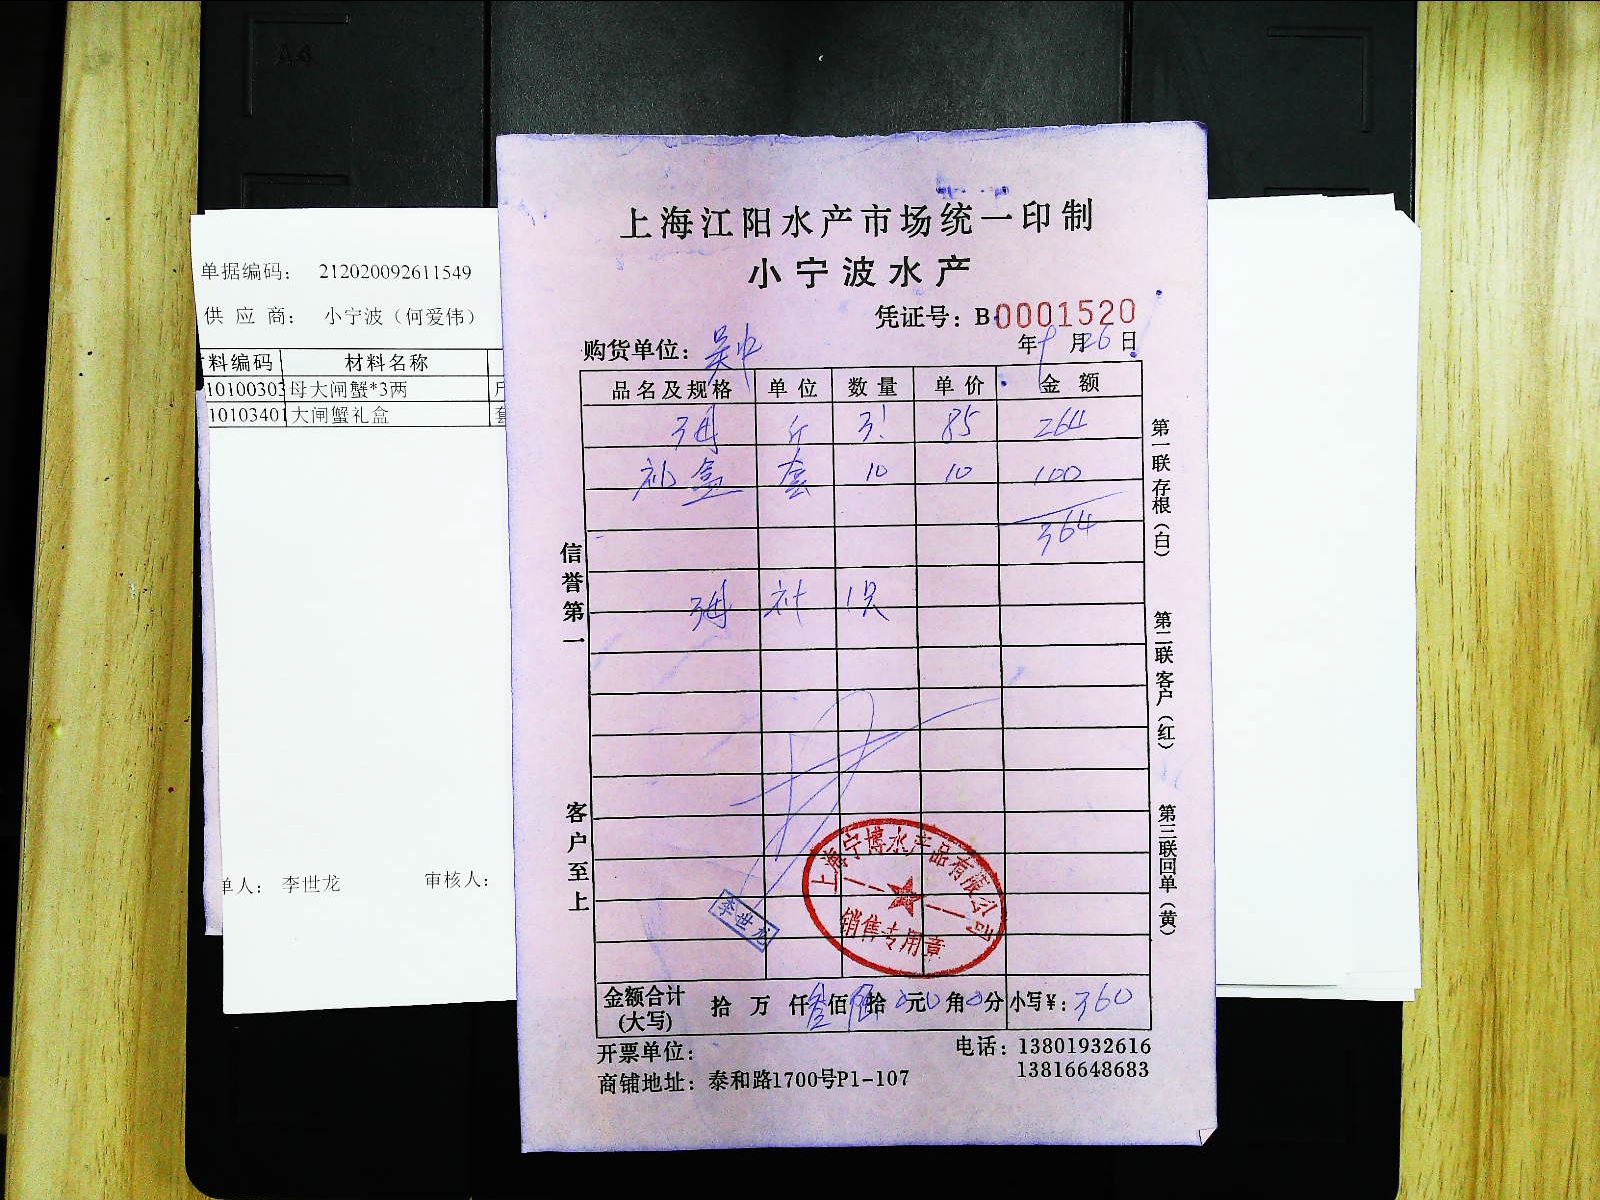 单据编码： 212020092611549
供 应 商： 小宁波（何爱伟）
料编码 材料名称
10100303 母大闸蟹*3两
10103401 大闸蟹礼盒
单人： 李世龙 审核人：
上海江阳水产市场统一印制
小宁波水产
凭证号：B 0001520
购货单位：吴中 年 9 月 26 日
品名及规格 单位 数量 单价 金额
3母 斤 3.1 85 264
礼盒 套 10 10 100
364
3母 补 1只
信誉第一
客户至上
第一联存根（白）
第二联客户（红）
第三联回单（黄）
上海宁博水产品有限公司
销售专用章
李世龙
金额合计(大写) 拾 万 仟 叁 佰 陆 拾 0 元 0 角 0 分 小写¥：360
开票单位： 电话：13801932616
商铺地址：泰和路1700号P1-107 13816648683